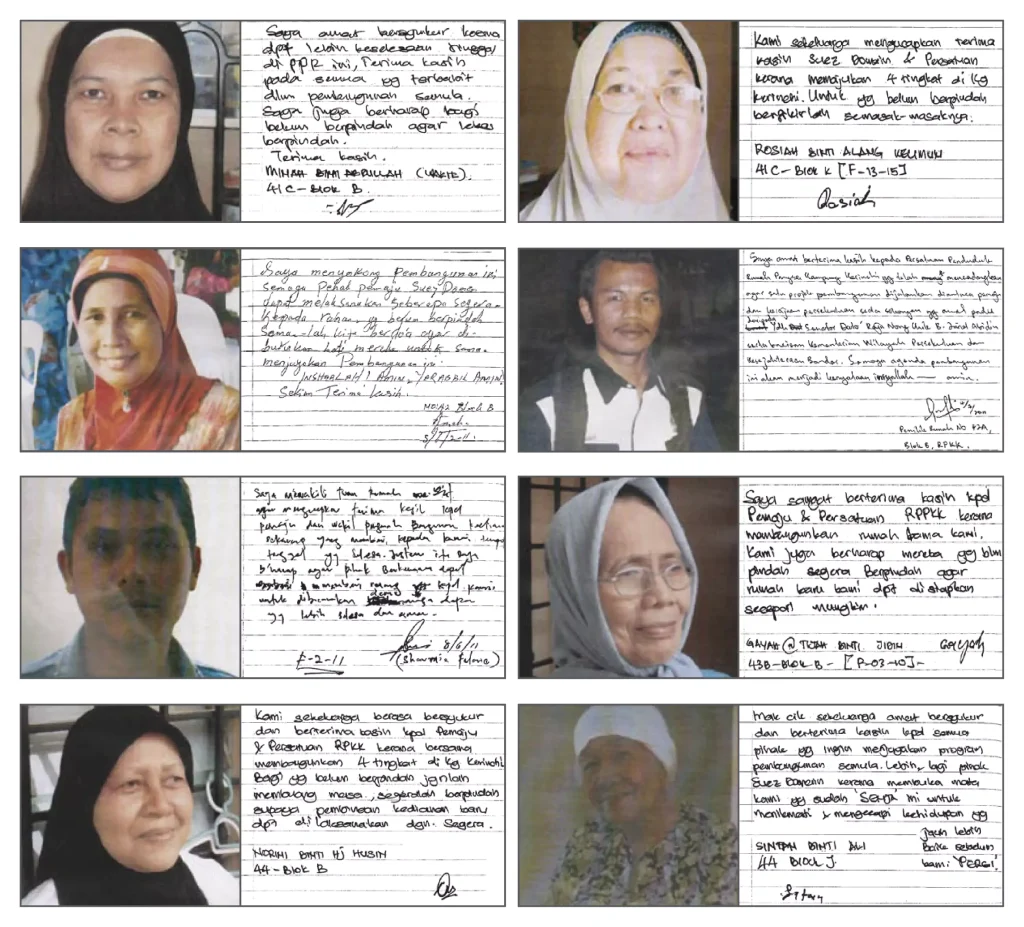 Saya amat bersyukur kerana
dpt lebih keselesaan tinggal
di PPR ini, Terima kasih
pada semua yg terbabit
dlm pembangunan semula.
Saya juga berharap bagi
belum berpindah agar lekas
berpindah.
Terima kasih.
MINAH BINTI ABDULLAH (WAKIL).
41C - BLOK B.
Kami sekeluarga mengucapkan terima
kasih Suez Domain & Persatuan
kerana memajukan 4 tingkat di Kg
Kerinchi. Untuk yg belum berpindah
berfikirlah semasak-masaknya.
ROSIAH BINTI ALANG
41C - BLOK K [F-13-15]
Rosiah
Saya menyokong Pembangunan ini
semoga Pehak pemaju Suez Domain
dapat melaksanakan seberapa segera
Kepada rakan, yg belum berpindah
sama-lah kita berdoa agar di
bukakan hati mereka untuk sama
menjayakan Pembangunan ini
INSHAALAH! AMIN, YARABAIL AMIN,
Sekian Terima kasih.
Block B
Saya amat berterima kasih kepada Persatuan Penduduk
Rumah Pangsa Kampung Kerinchi yg telah mencadangkan
agar satu projek pembangunan dijalankan diantara pemaju
dan kerajaan persekutuan serta sokongan yg amat padu
daripada Senator Dato' Raja Nong Chik B. Zainal Abidin
serta Kementerian Wilayah Persekutuan dan
Kesejahteraan Bandar. Semoga agenda pembangunan
ini akan menjadi kenyataan insyallah — amin.
Pemilik Rumah No 42A,
Blok B, RPKK.
Saya mewakili tuan rumah
agar mengucapkan terima kasih
pemaju dan wakil
sekarang yang memberi kepada kami tempat
tinggal yg selesa. Justeru itu saya
agar pihak
memberi
untuk
yg lebih selesa dan aman.
8/6/11
F-2-11
Saya sangat berterima kasih kpd
Pemaju & Persatuan RPPKK kerana
membangunkan rumah lama kami.
Kami juga berharap mereka yg blm
pindah segera Berpindah agar
rumah baru kami dpt disiapkan
secepat mungkin.
GAYAH @ TIJAH BINTI JIDIN Gayah
43B - BLOK B - [P-03-10] -
Kami sekeluarga berasa bersyukur
dan berterima kasih kpd Pemaju
& Persatuan RPKK kerana bersama
membangunkan 4 tingkat di Kg Kerinchi.
Bagi yg belum berpindah jgnlah
membuang masa, segeralah berpindah
supaya pembinaan kediaman baru
dpt di laksanakan dgn. Segera.
NORIHI BINTI HJ HUSIN
44 - BLOK B
Mak cik sekeluarga amat bersyukur
dan berterima kasih kpd semua
pihak yg ingin menjayakan program
pembangunan semula. Lebih, lagi pihak
Suez Domain kerana membuka mata
kami yg sudah 'SENJA' ini untuk
menikmati & mengecapi kehidupan yg
jauh lebih
baik sebelum
kami 'PERGI'.
SINTAH BINTI ALI
44 BLOCK J.